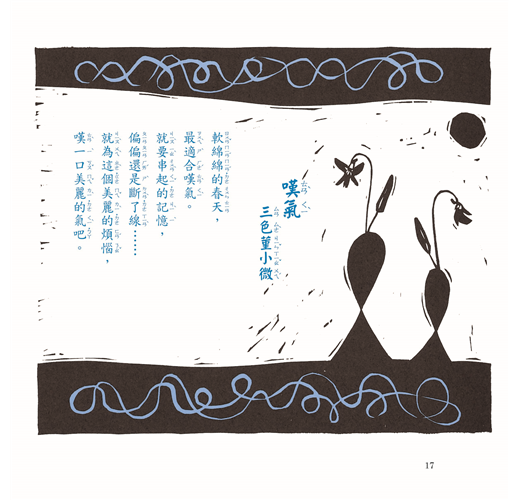 嘆氣
三色菫小微
軟綿綿的春天，
最適合嘆氣。
就要串起的記憶，
偏偏還是斷了線……
就為這個美麗的煩惱，
嘆一口美麗的氣吧。
17